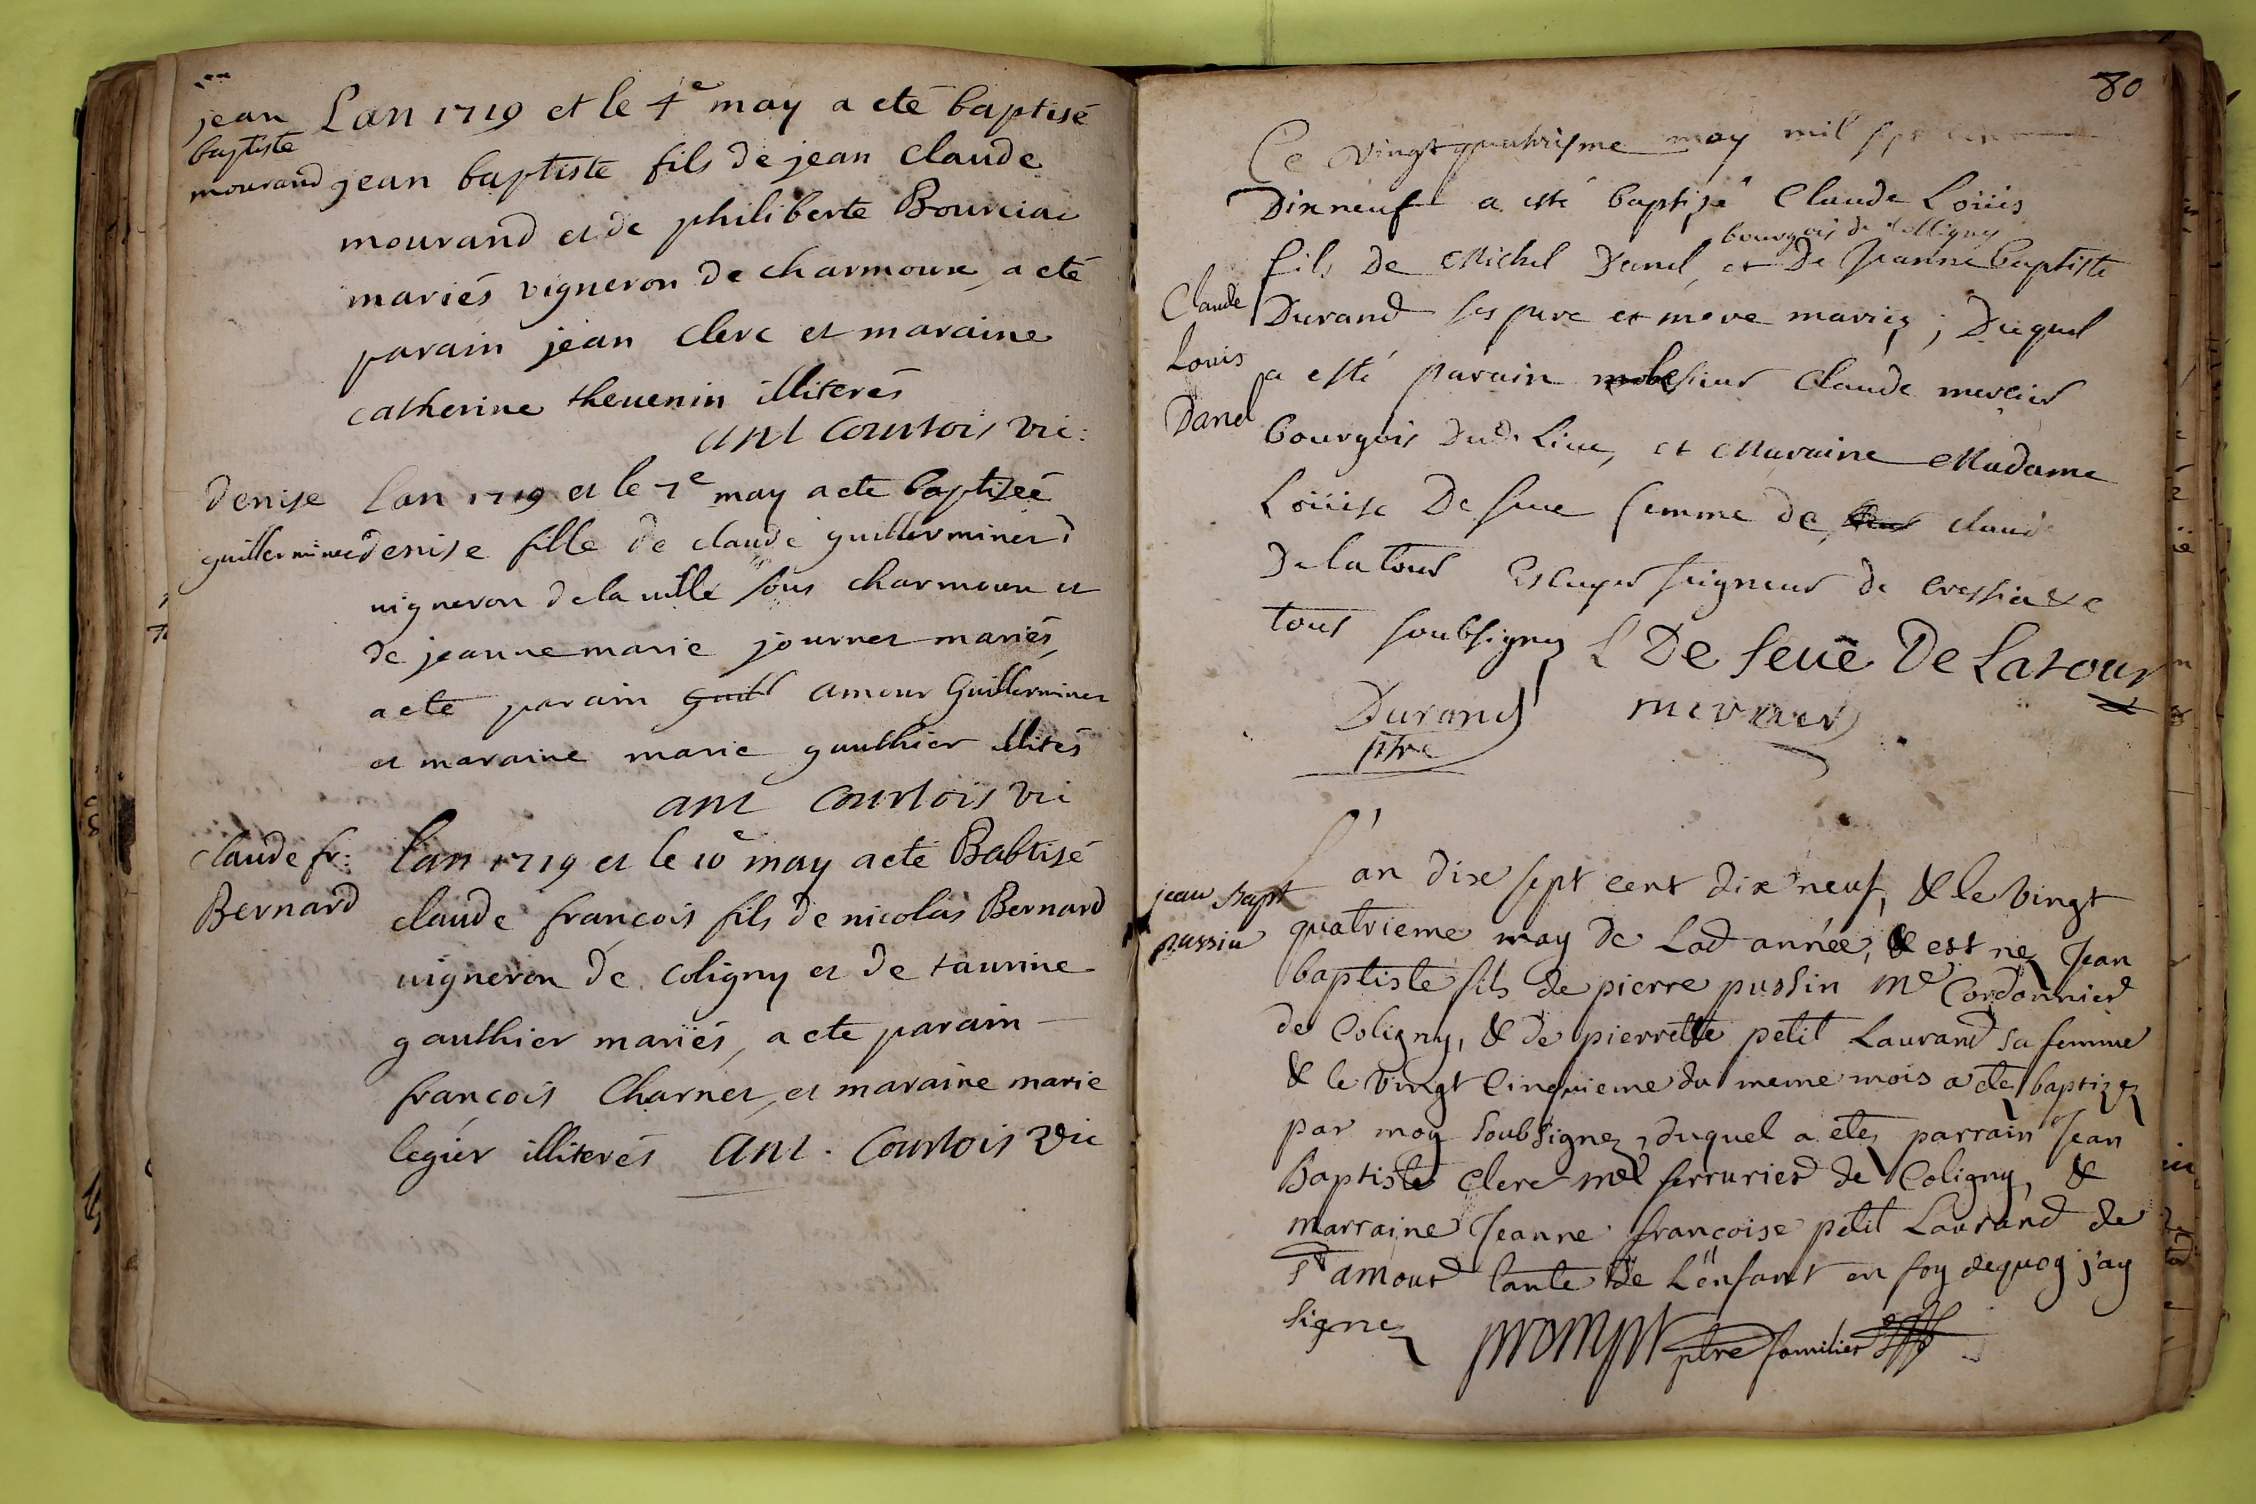 jean
baptiste
mourand
Lan 1719 et le 4e may a eté baptisé
jean baptiste fils de jean claude
mourand et de philiberte Bourciac
mariés vigneron de charmoux, a eté
parain jean clerc et maraine
catherine thevenin illiterés
ant courtois vic:
denise
guillerminet
Lan 1719 et le 7e may a ete baptisée
denise fille de claude guillerminet
vigneron de la ville sous charmoux et
de jeanne marie journet mariés,
a ete parain amour Guillerminet
et maraine marie gauthier illités
ant courtois vic
claude fr:
Bernard
Lan 1719 et le 10e may a eté Babtisé
claude françois fils de nicolas Bernard
vigneron de coligny et de taurine
gauthier mariés, a ete parain
françois Charnet, et maraine marie
legier illiterés ant. Courtois Vic
80
Ce vingt quatrisme may mil sept cent
Dixneuf a esté baptizé Claude Loüis
bourgois de Colligny
fils De Michel Danel, et De Jeanne baptiste
Claude
Louis
Danel
Durand ses pere et mere mariez; Duquel
a esté parain sieur Claude mercier
bourgois Dud. Lieu, et Maraine Madame
Loüise De seve femme de claude
De la tour Escuyer seigneur de cressia &c
tous soubsignez L De Seuë De Latour
Durand mercier
ptre
jean bapt
pussin
L'an dix sept cent dix neuf, & le vingt
quatrieme may de Lad année, & est né Jean
baptiste fils de pierre pussin Me Cordonnier
de Coligny, & de pierrette petit Laurand sa femme
& le vingt Cinquieme du meme mois a eté baptizez
par moy soubsignez, duquel a étez parrain Jean
Baptiste clerc me serrurier de Coligny, &
marraine Jeanne françoise petit Laurand de
St amour tante de L'enfant en foy dequoy j'ay
signez prompt ptre familier